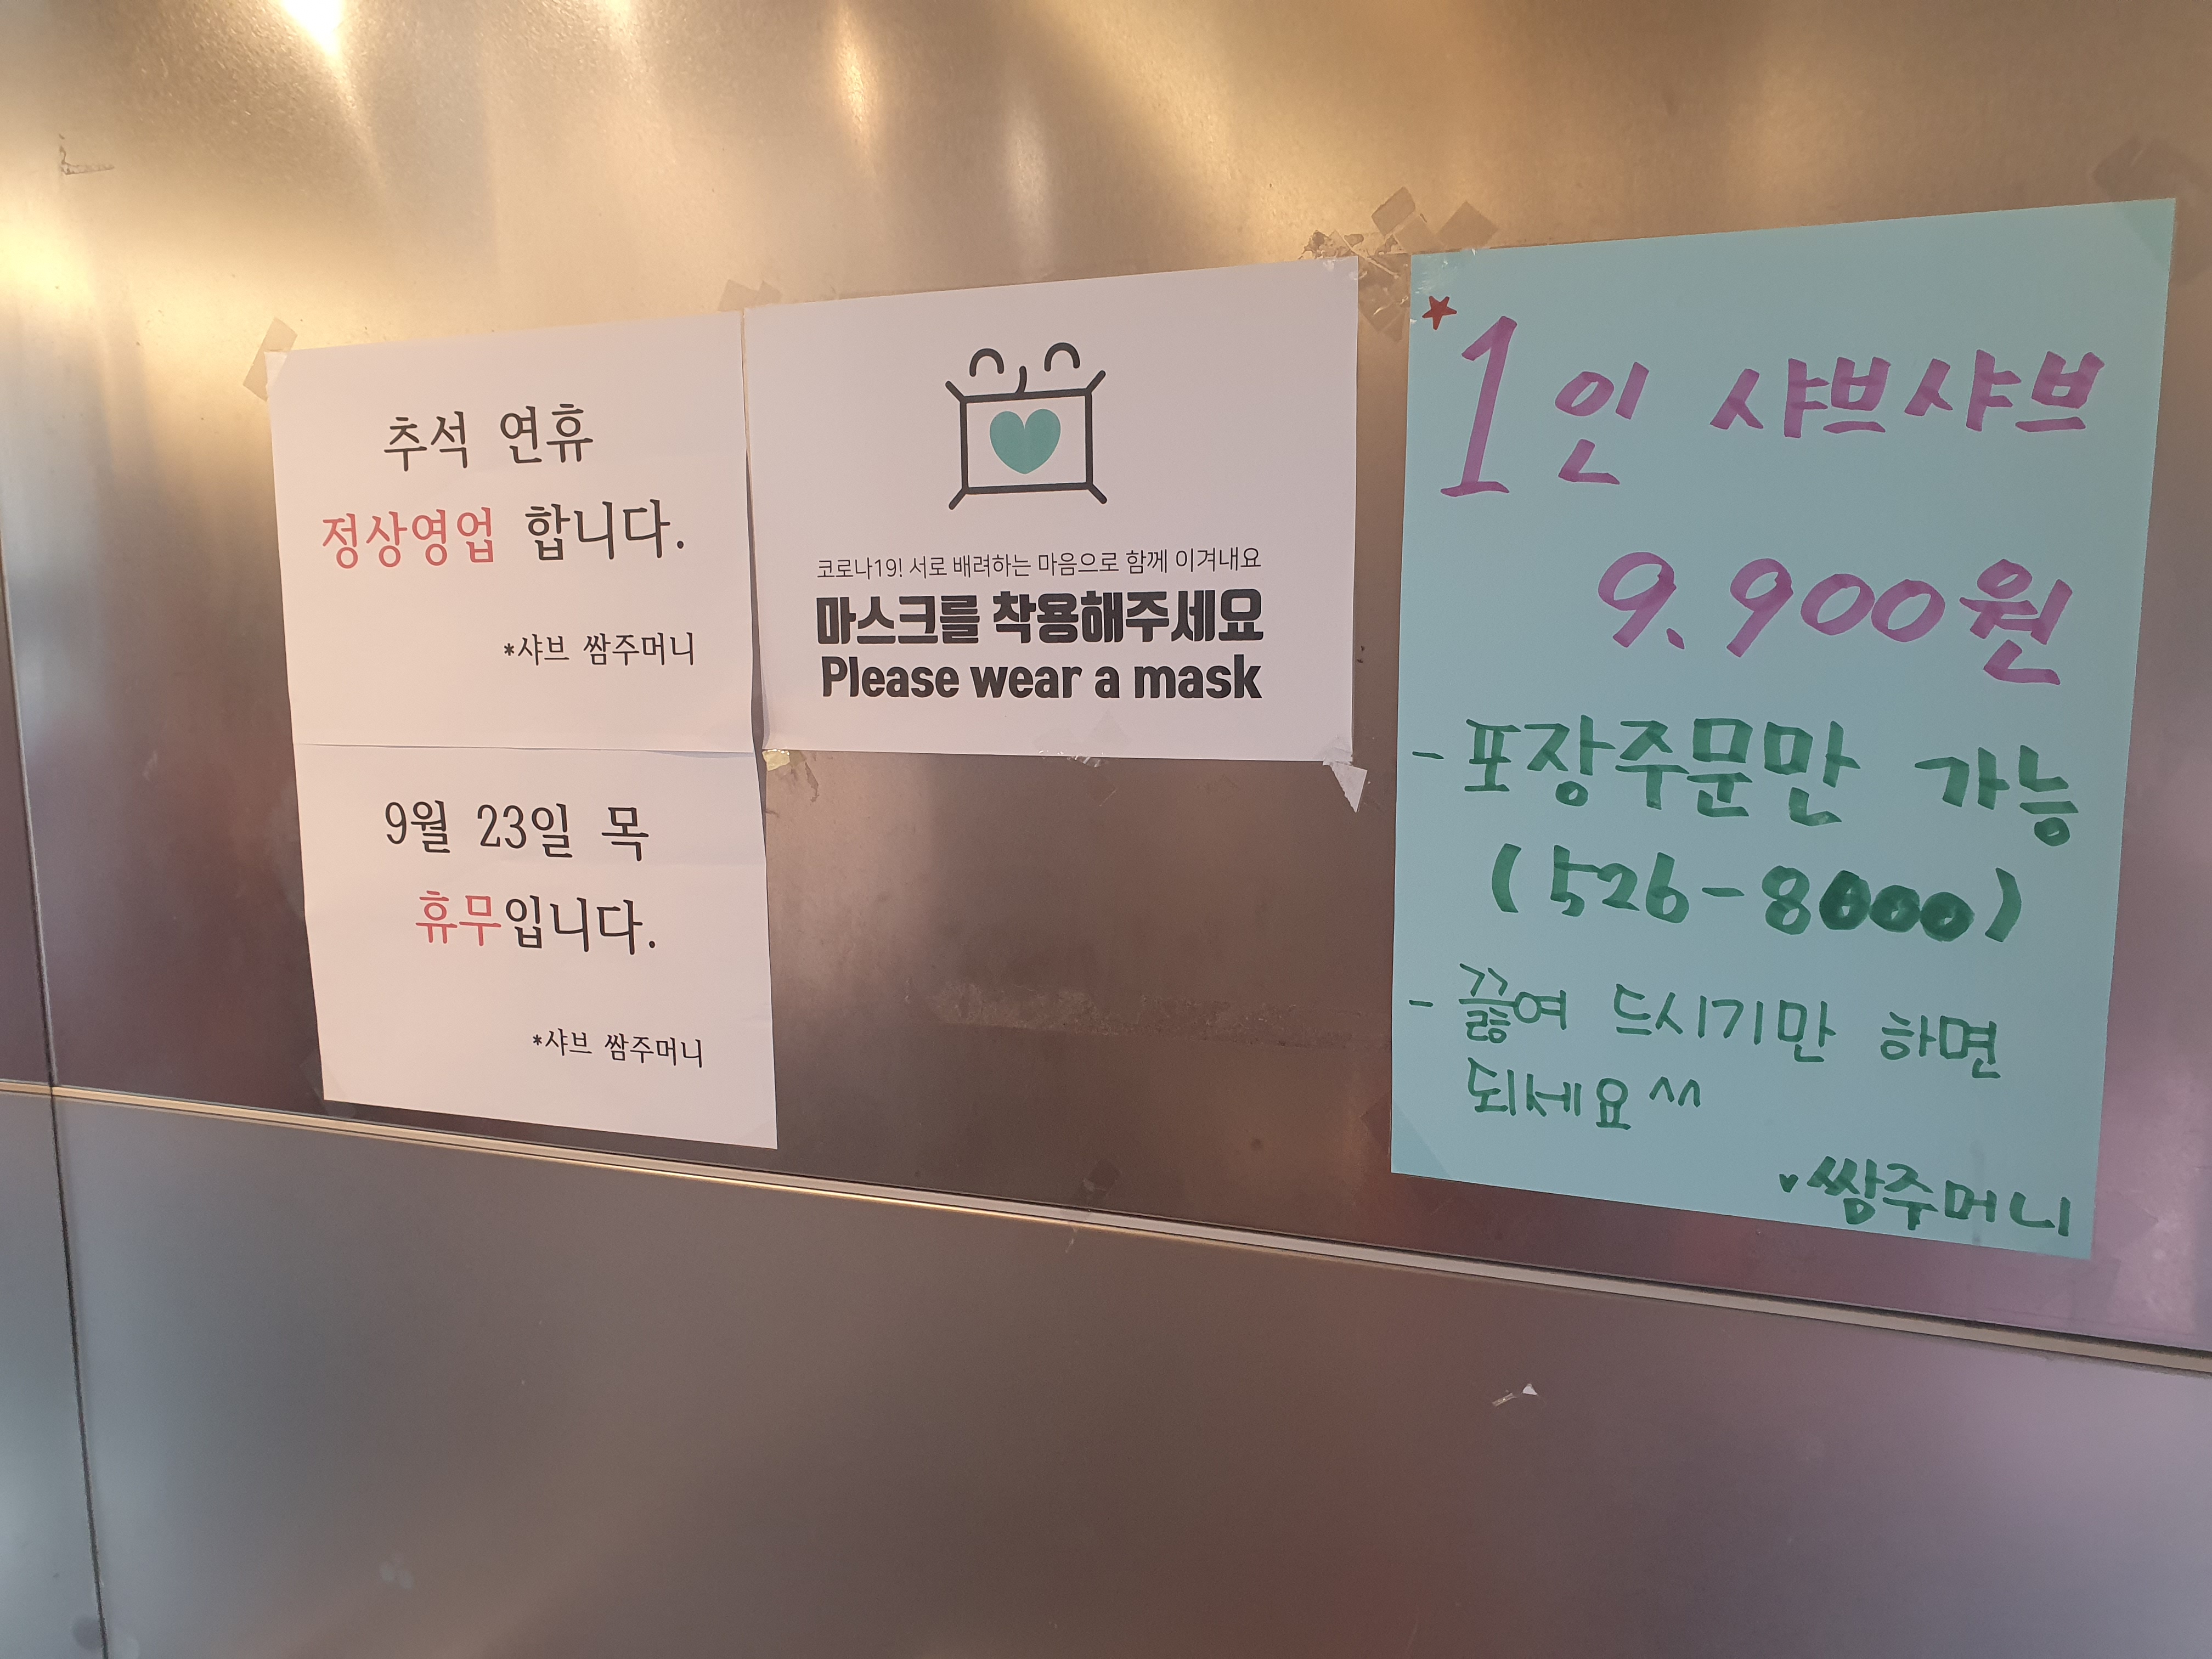 추석 연휴
정상영업 합니다.
*샤브 쌈주머니
9월 23일 목
휴무입니다.
*샤브 쌈주머니
코로나19! 서로 배려하는 마음으로 함께 이겨내요
마스크를 착용해주세요
Please wear a mask
1인 샤브샤브
9.900원
- 포장주문만 가능
(526-8000)
- 끓여 드시기만 하면
되세요^^
쌈주머니